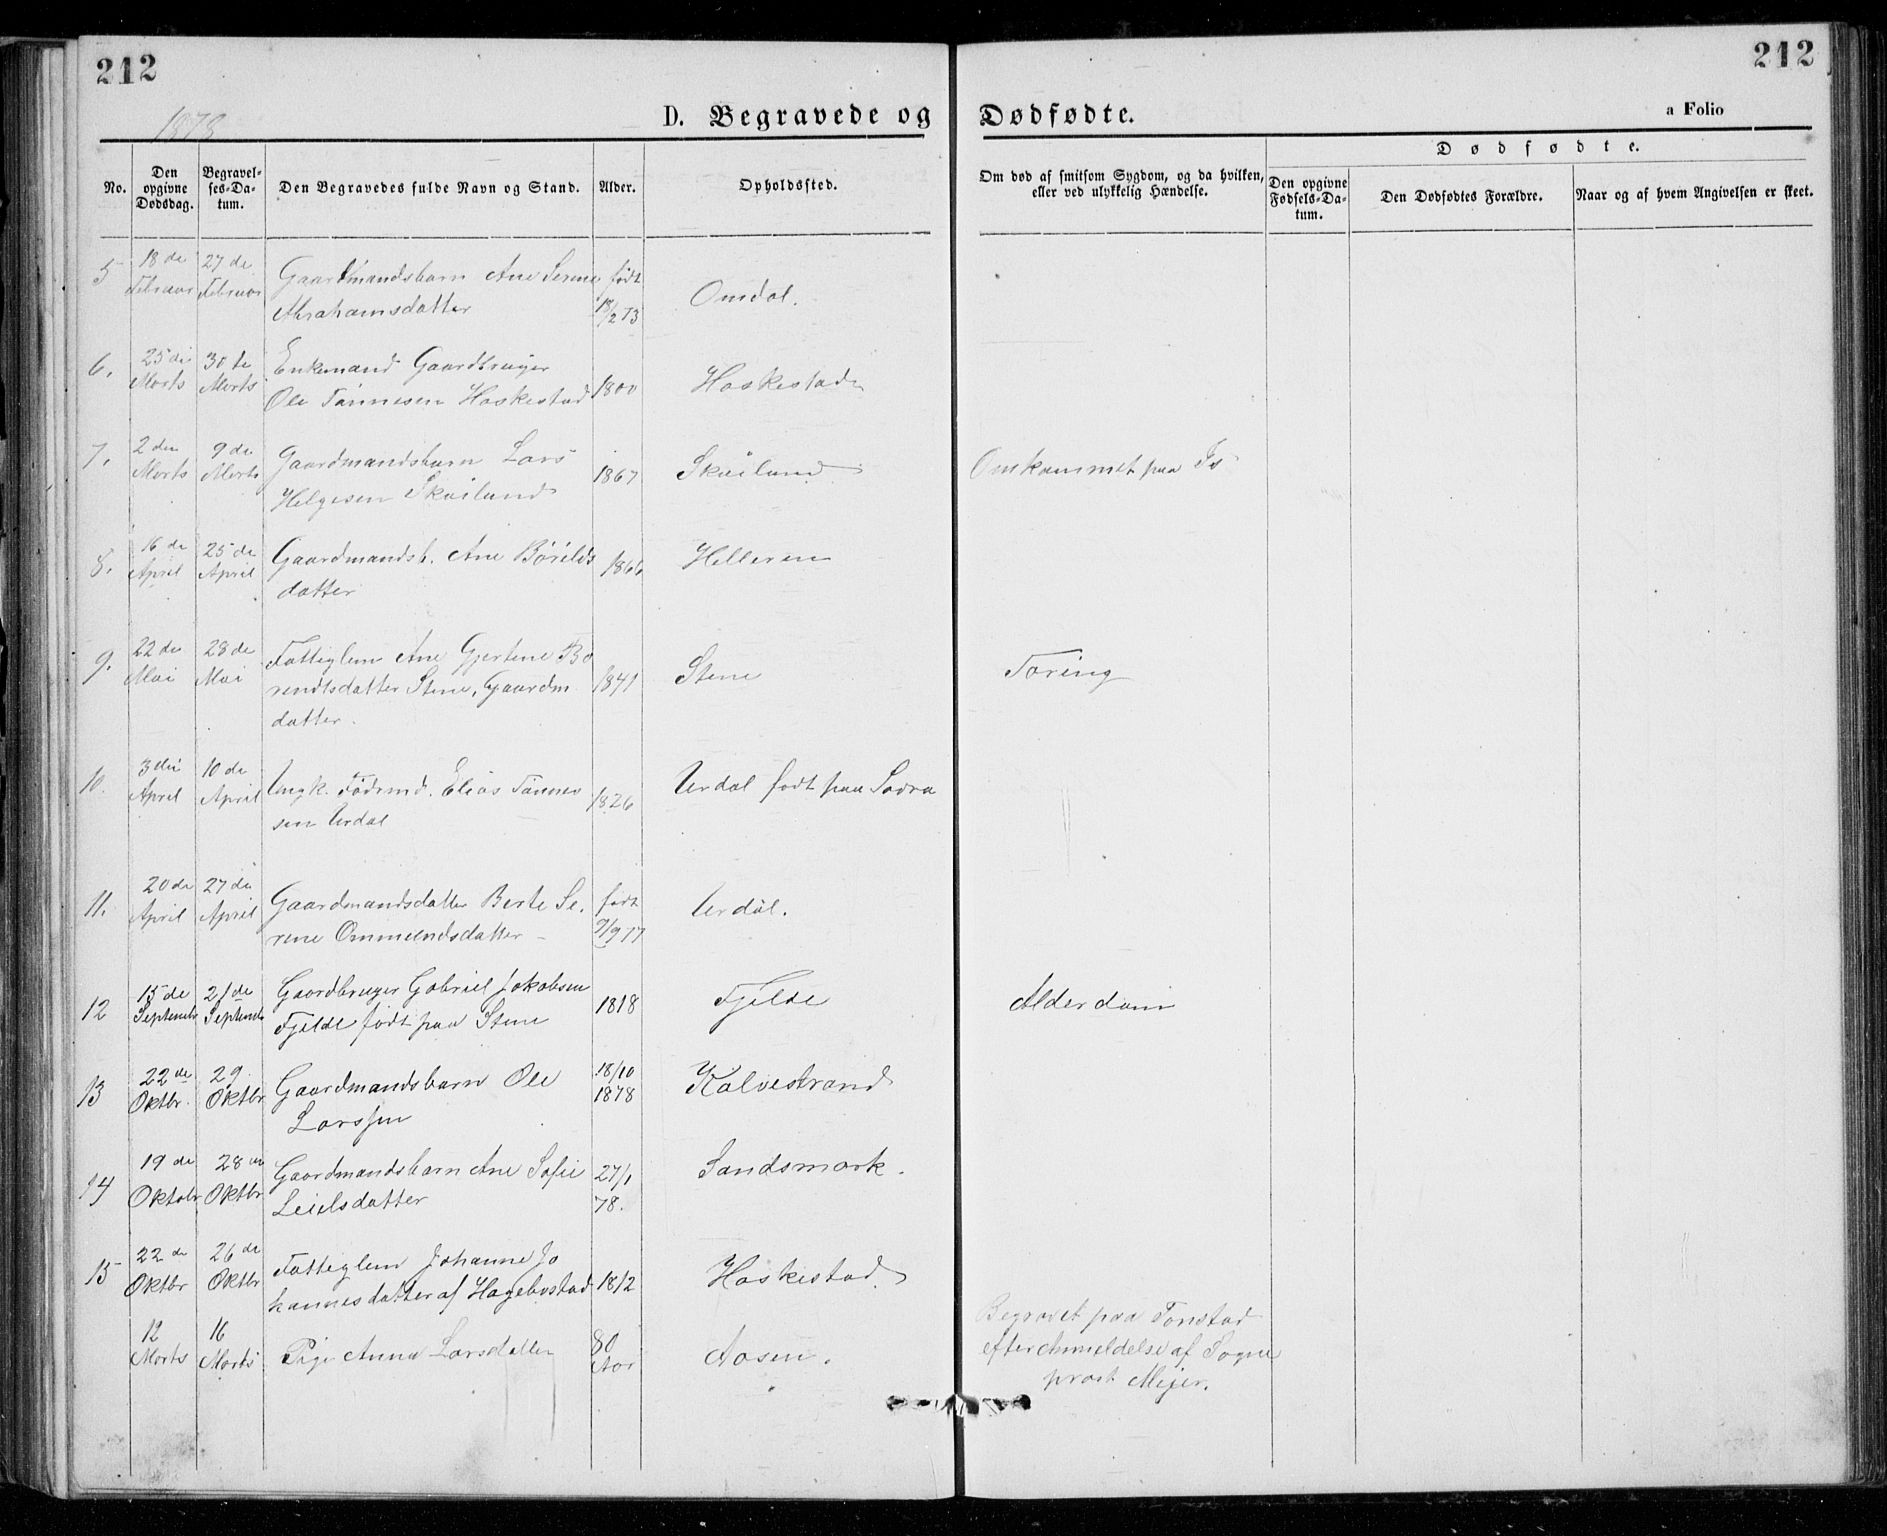 212
212
1878
D. Begravede og Dødfødte.
a Folio
No.
Den opgivne Dødsdag.
Begravelses-Datum.
Den Begravedes fulde Navn og Stand.
Alder.
Opholdssted.
Om død af smitsom Sygdom, og da hvilken,
eller ved ulykkelig Hændelse.
Dødfødte.
Den opgivne Fødsels-Datum.
Den Dødfødtes Forældre.
Naar og af hvem Angivelsen er skeet.
5 18de Februar 27de Februar Gaardmandsbarn Ane Serine født
Abrahamsdatter 18/2 73 Omdal.
6. 25de Marts 30te Marts Enkemand Gaardbruger
Ole Tønnesen Haskestad 1800 Haskestad
7. 2den Marts 9de Marts Gaardmandsbarn Lars
Helgesen Skailand 1867 Skailand Omkommet paa Is
8. 16de April 25de April Gaardmandsb. Ane Børilds
datter 1866 Helleren
9. 22de Mai 28de Mai Fattiglem Ane Gjertine Be
rendtsdatter Stene, Gaardm. 1841 Stene Tæring
datter.
10. 3die April 10de April Ungk. Födrmd. Elias Tønnes
sen Urdal 1826 Urdal født paa Salva
11. 20de April 27de April Gaardmandsdatter Berte Se. født
rine Ommundsdatter 9/9 77 Urdal.
12 15de September 21de September Gaardbruger Gabriel Jakobsen
Fjelde født paa Stene 1818 Fjelde Alderdom
13 22de Oktbr. 29. Oktbr Gaardmandsbarn Ole 18/10
Larssen 1878 Kalvestrand
14 19de Oktobr 28de Oktbr Gaardmandsbarn Ane Sofie 27/1
Leielsdatter 78. Sandsmark.
15 22de Oktbr 26de Oktbr Fattiglem Johanne Jo
hannesdatter af Hagebostad 1812 Haskestad.
12 Marts 16 Marts Pige Anna Larsdatter 80 Aar Aasen.
Begravet paa Tonstad
efter Anmeldelse af Sogne
prest Mejer.